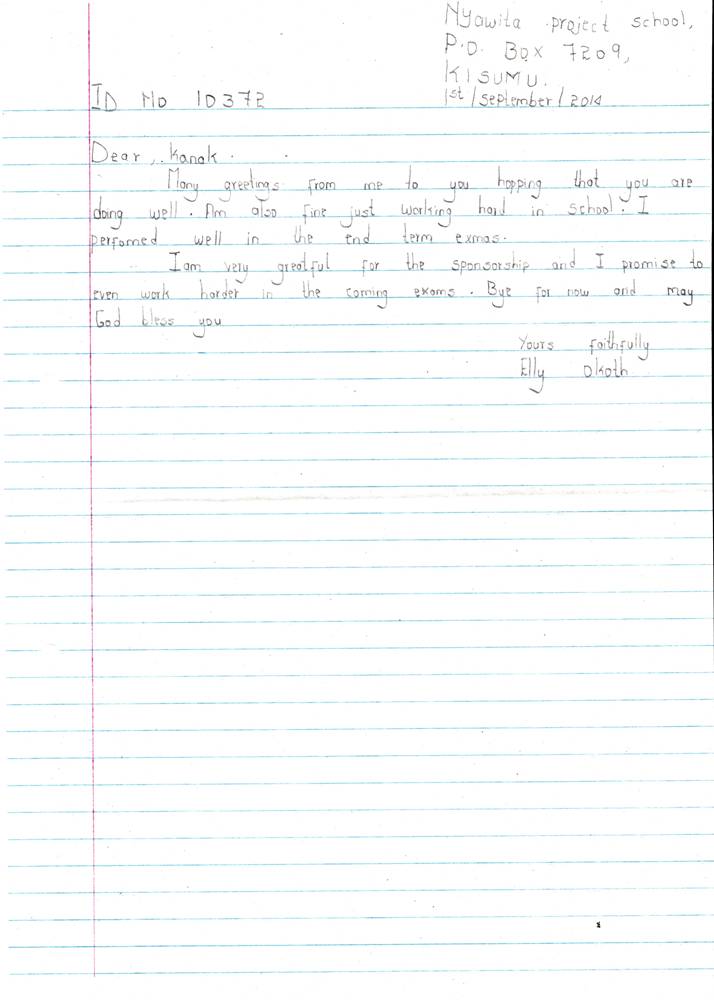 Nyawita project school,
P.O. Box 7209,
KISUMU.
ID No 10372
1st/September/2014
Dear, Kanak.
Many greetings from me to you hopping that you are
doing well. Am also fine just working hard in school. I
perfomed well in the end term exmas.
I am very greatful for the sponsorship and I promise to
even work harder in the coming exams. Bye for now and may
God bless you
Yours faithfully
Elly Okoth